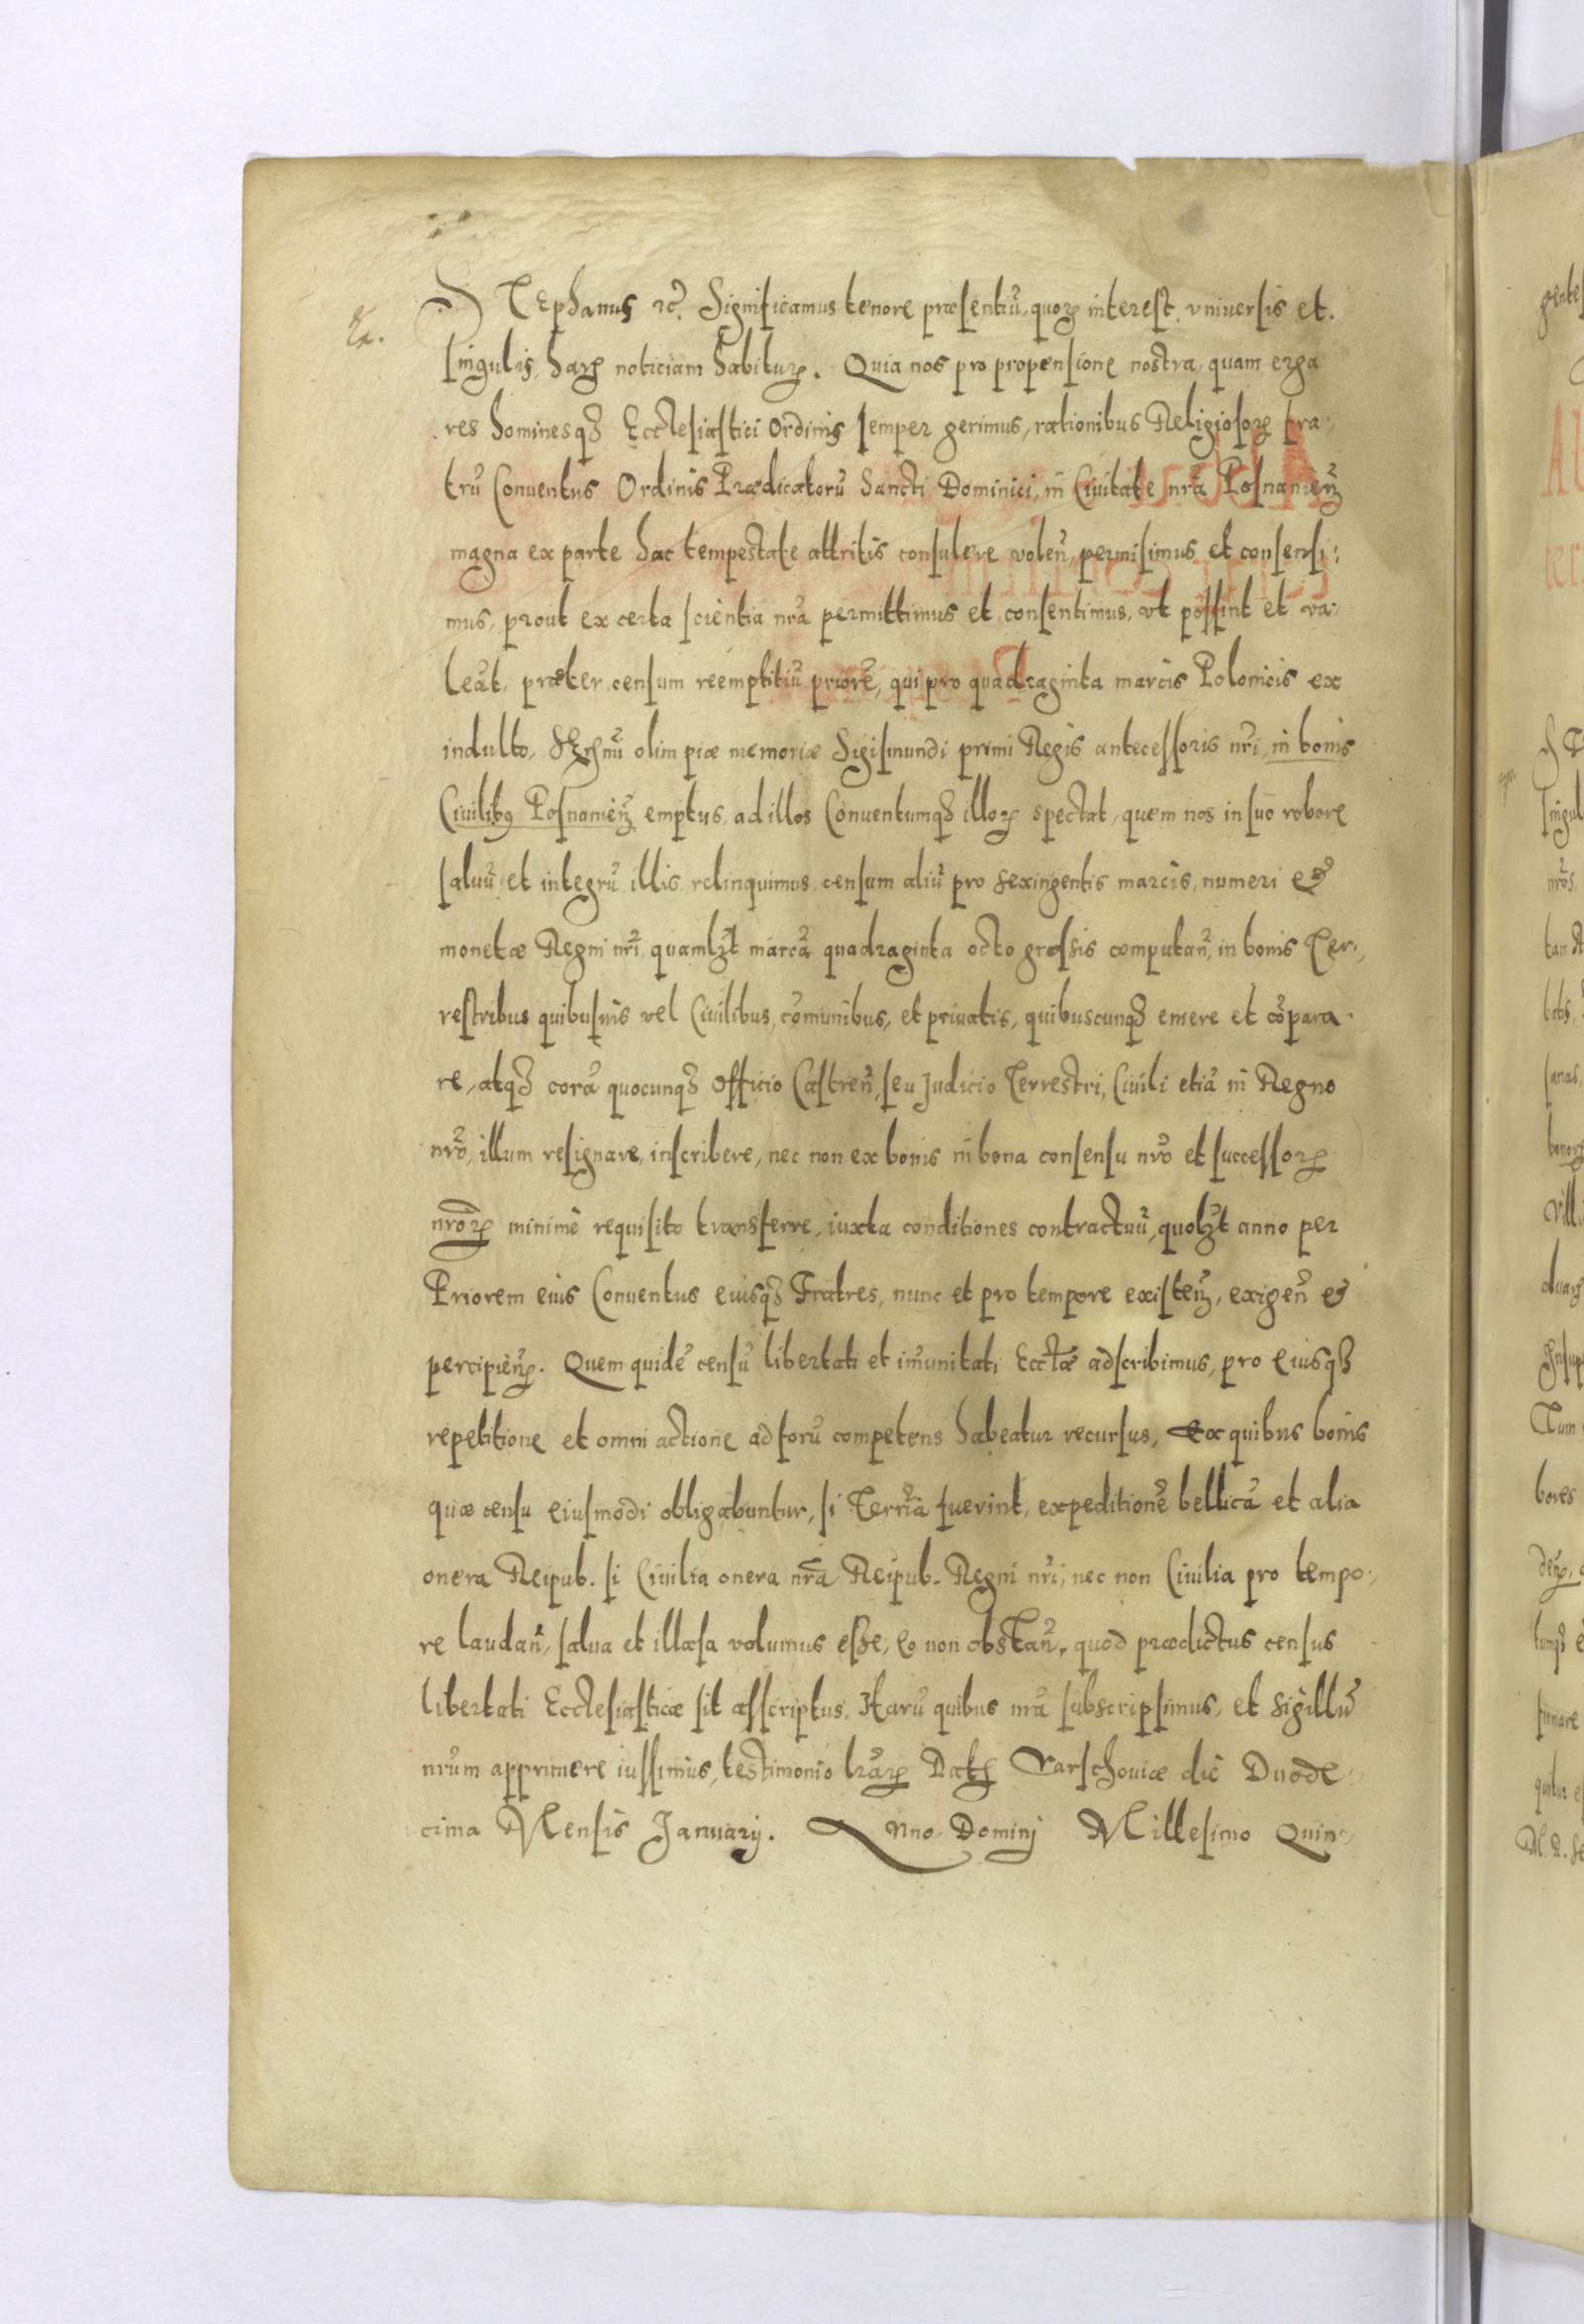 STEphanus &c̃. Significamus tenore præsentiũ, quoꝝ interest, vniversis et
singulis, haꝝ noticiam habituꝝ. Quia nos pro propensione nostra, quam erga
res hominesqꝫ Ecclesiastici Ordinis semper gerimus, rationibus Religiosoꝝ fra-
trũ Conventus Ordinis Prædicatorũ Sancti Dominici, in Civitate nrã Posnanień
magna ex parte hac tempestate attritis consulere voleñ, permisimus et consensi-
mus, prout ex certa scientia nrã permittimus et consentimus, vt possint et va-
leãt, præter censum reemptitiũ priorẽ, qui pro quadraginta marcis Polonicis ex
indulto, olim piæ memoriæ Sigismundi primi Regis antecessoris nri, in bonis
Civilibꝰ Posnanień emptus, ad illos Conventumqꝫ illoꝝ spectat, quem nos in suo robore
salvũ et integrũ illis relinquimus, censum aliũ pro sexingentis marcis, numeri et
monetæ Regni nri, quamlꝫt marcã quadraginta octo grossis computañ, in bonis Ter-
restribus quibusuis vel Civilibus, cõmunibus, et privatis, quibuscunqꝫ emere et cõpara-
re, atqꝫ corã quocunqꝫ Officio Castreñ, seu Judicio Terrestri, Civili etiã in Regno
nrõ, illum resignare, inscribere, nec non ex bonis in bona consensu nrõ et successoꝝ
nrõꝝ minimè requisito transferre, iuxta conditiones contractuũ, quolꝫt anno per
Priorem eius Conventus eiusqꝫ Fratres, nunc et pro tempore existeñ, exigeñ et
percipieñ. Quem quidẽ censũ libertati et im̃unitati Eccl̃æ adscribimus, pro eiusqꝫ
repetitione et omni actione ad forũ competens habeatur recursus, Ex quibus bonis
quæ censu eiusmodi obligabuntur, si Terria fuerint, expeditionẽ bellicã et alia
onera Reipub. si Civilia onera nrã Reipub. Regni nri, nec non Civilia pro tempo-
re laudañ, salva et illæsa volumus esse, eo non obstañ, quod prædictus census
libertati Ecclesiasticæ sit asscriptus, Harũ quibus mñu subscripsimus, et sigillũ
nrũm apprimere iussimus, testimonio lrãꝝ Datꝫ Varschouiæ diè Duode-
cima Mensis Januarij. Anno Dominj Millesimo Quin-